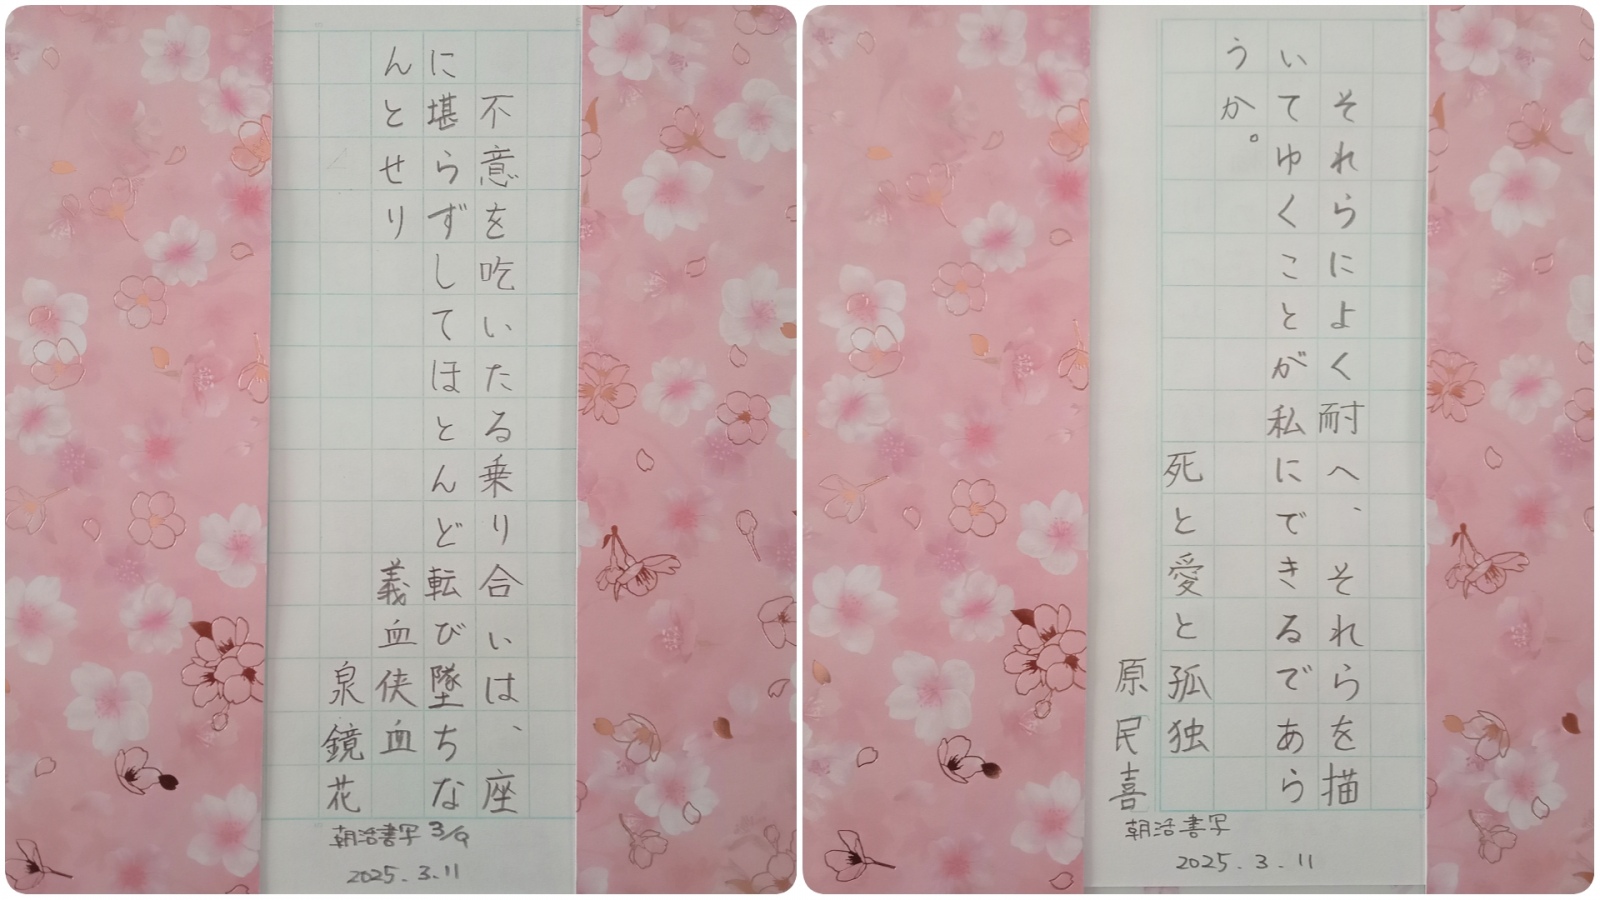 不意を吃いたる乗り合いは、座
に堪らずしてほとんど転び墜ちな
んとせり
義血侠血
泉鏡花
朝活書写 3/9
2025.3.11
それらによく耐へ、それらを描
いてゆくことが私にできるであら
うか。
死と愛と孤独
原民喜
朝活書写
2025.3.11